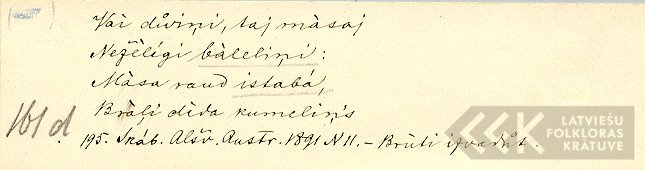 Vai důviņi, taj màsaj
Nežèlígi bàleliņi:
Màsa raud istabá,
Bràļi dída kumeliņ's
161 d.
195. Skáb. Alšv. Austr. 1891 N 11. – Brūti izvadůt.
LATVIEŠU
FOLKLORAS
KRĀTUVE